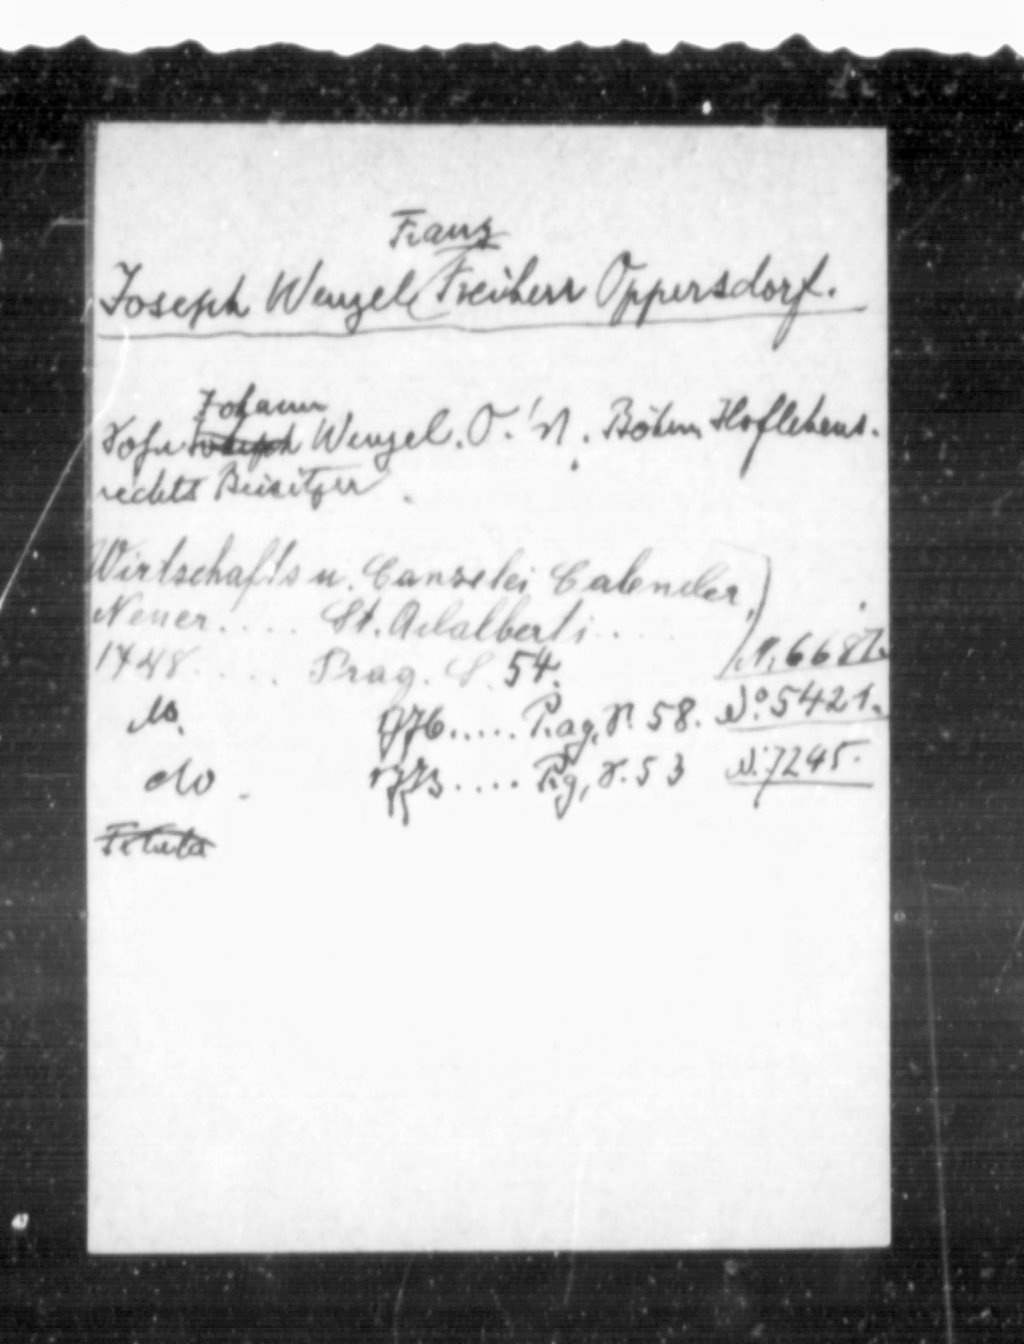 Franz
Joseph Wenzel Freiherr Oppersdorf.
Johann
Sohn Joseph Wenzel. O.'s. Böhm Hoflehens-
rechts Beisitzer.
Wirtschafts u. Canzelei Calender,
Neuer..... St. Adalberti.....
1748..... Prag. S. 54. N. 6687.
do. 1776..... Prag, S. 58. No. 5421.
do. 1773.... Prg, S. 53 N. 7245.